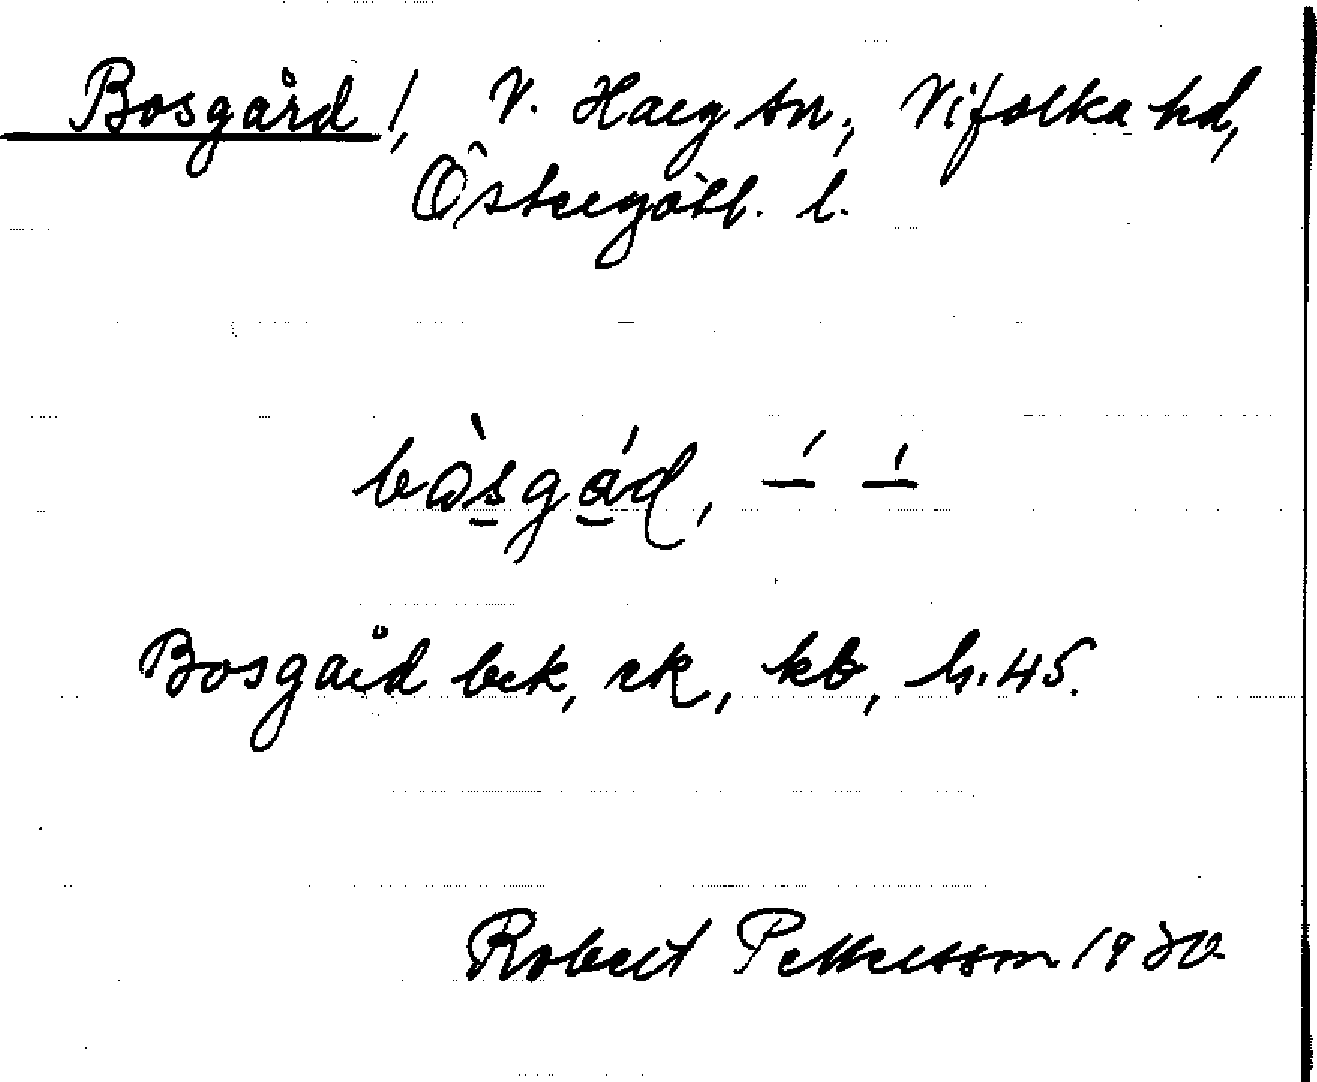 Bosgård !, V. Harg sn, Vifolka hd,
Östergötl. l.
Bosgård bek, ek, kb, h. 45.
Robert Pettersson 1930